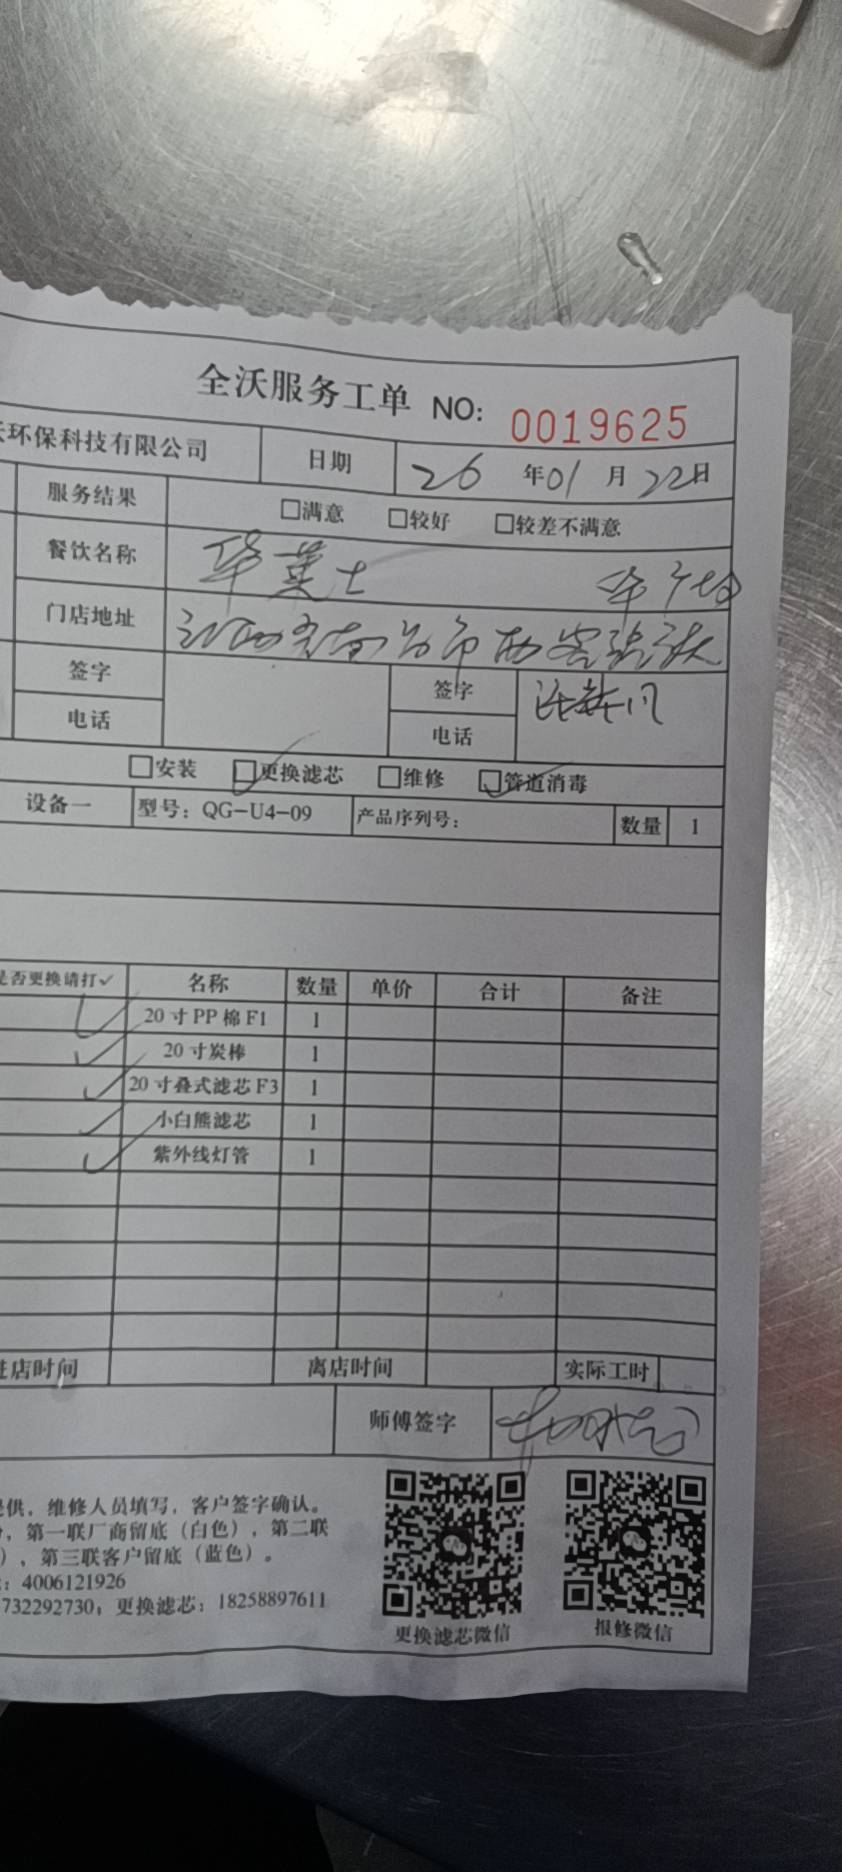 全沃服务工单 NO: 0019625
环保科技有限公司 日期 26 年 01 月 22 日
服务结果 □满意 □较好 □较差不满意
餐饮名称 华莱士
门店地址 江西省南昌市
签字 签字
电话 电话
□安装 □更换滤芯 □维修 □管道消毒
设备一 型号：QG-U4-09 产品序列号： 数量 1
是否更换请打✓ 名称 数量 单价 合计 备注
✓ 20寸PP棉F1 1
✓ 20寸炭棒 1
✓ 20寸叠式滤芯F3 1
✓ 小白熊滤芯 1
✓ 紫外线灯管 1
进店时间 离店时间 实际工时
师傅签字
提供，维修人员填写，客户签字确认。
，第一联厂商留底（白色），第二联
），第三联客户留底（蓝色）。
：4006121926
732292730，更换滤芯：18258897611
更换滤芯微信 报修微信